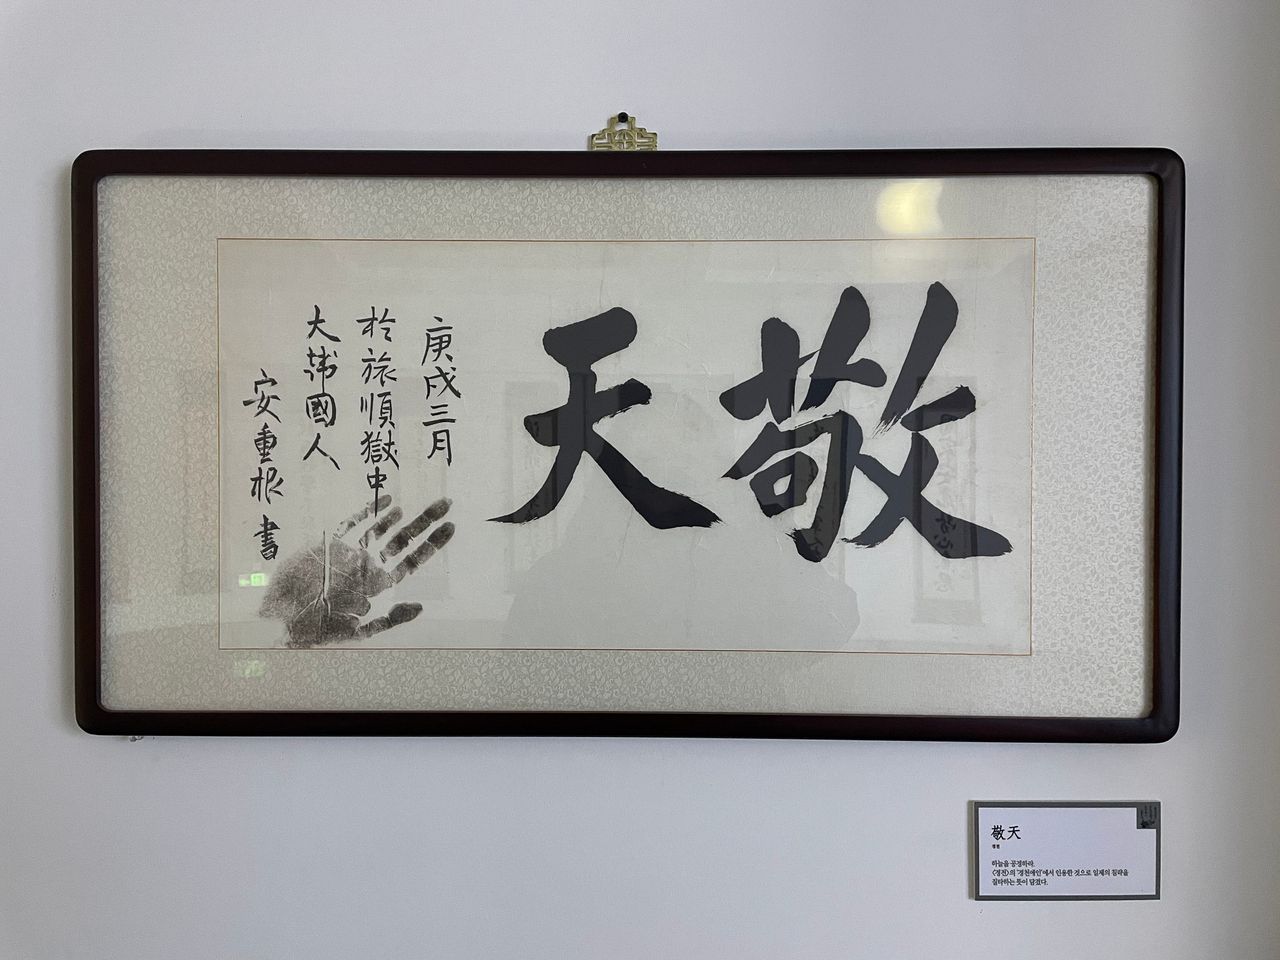 敬天
庚戌三月
於旅順獄中
大韓國人
安重根書
敬天
경천
하늘을 공경하라.
《경전》의 '경천애인'에서 인용한 것으로 일제의 침략을
질타하는 뜻이 담겼다.